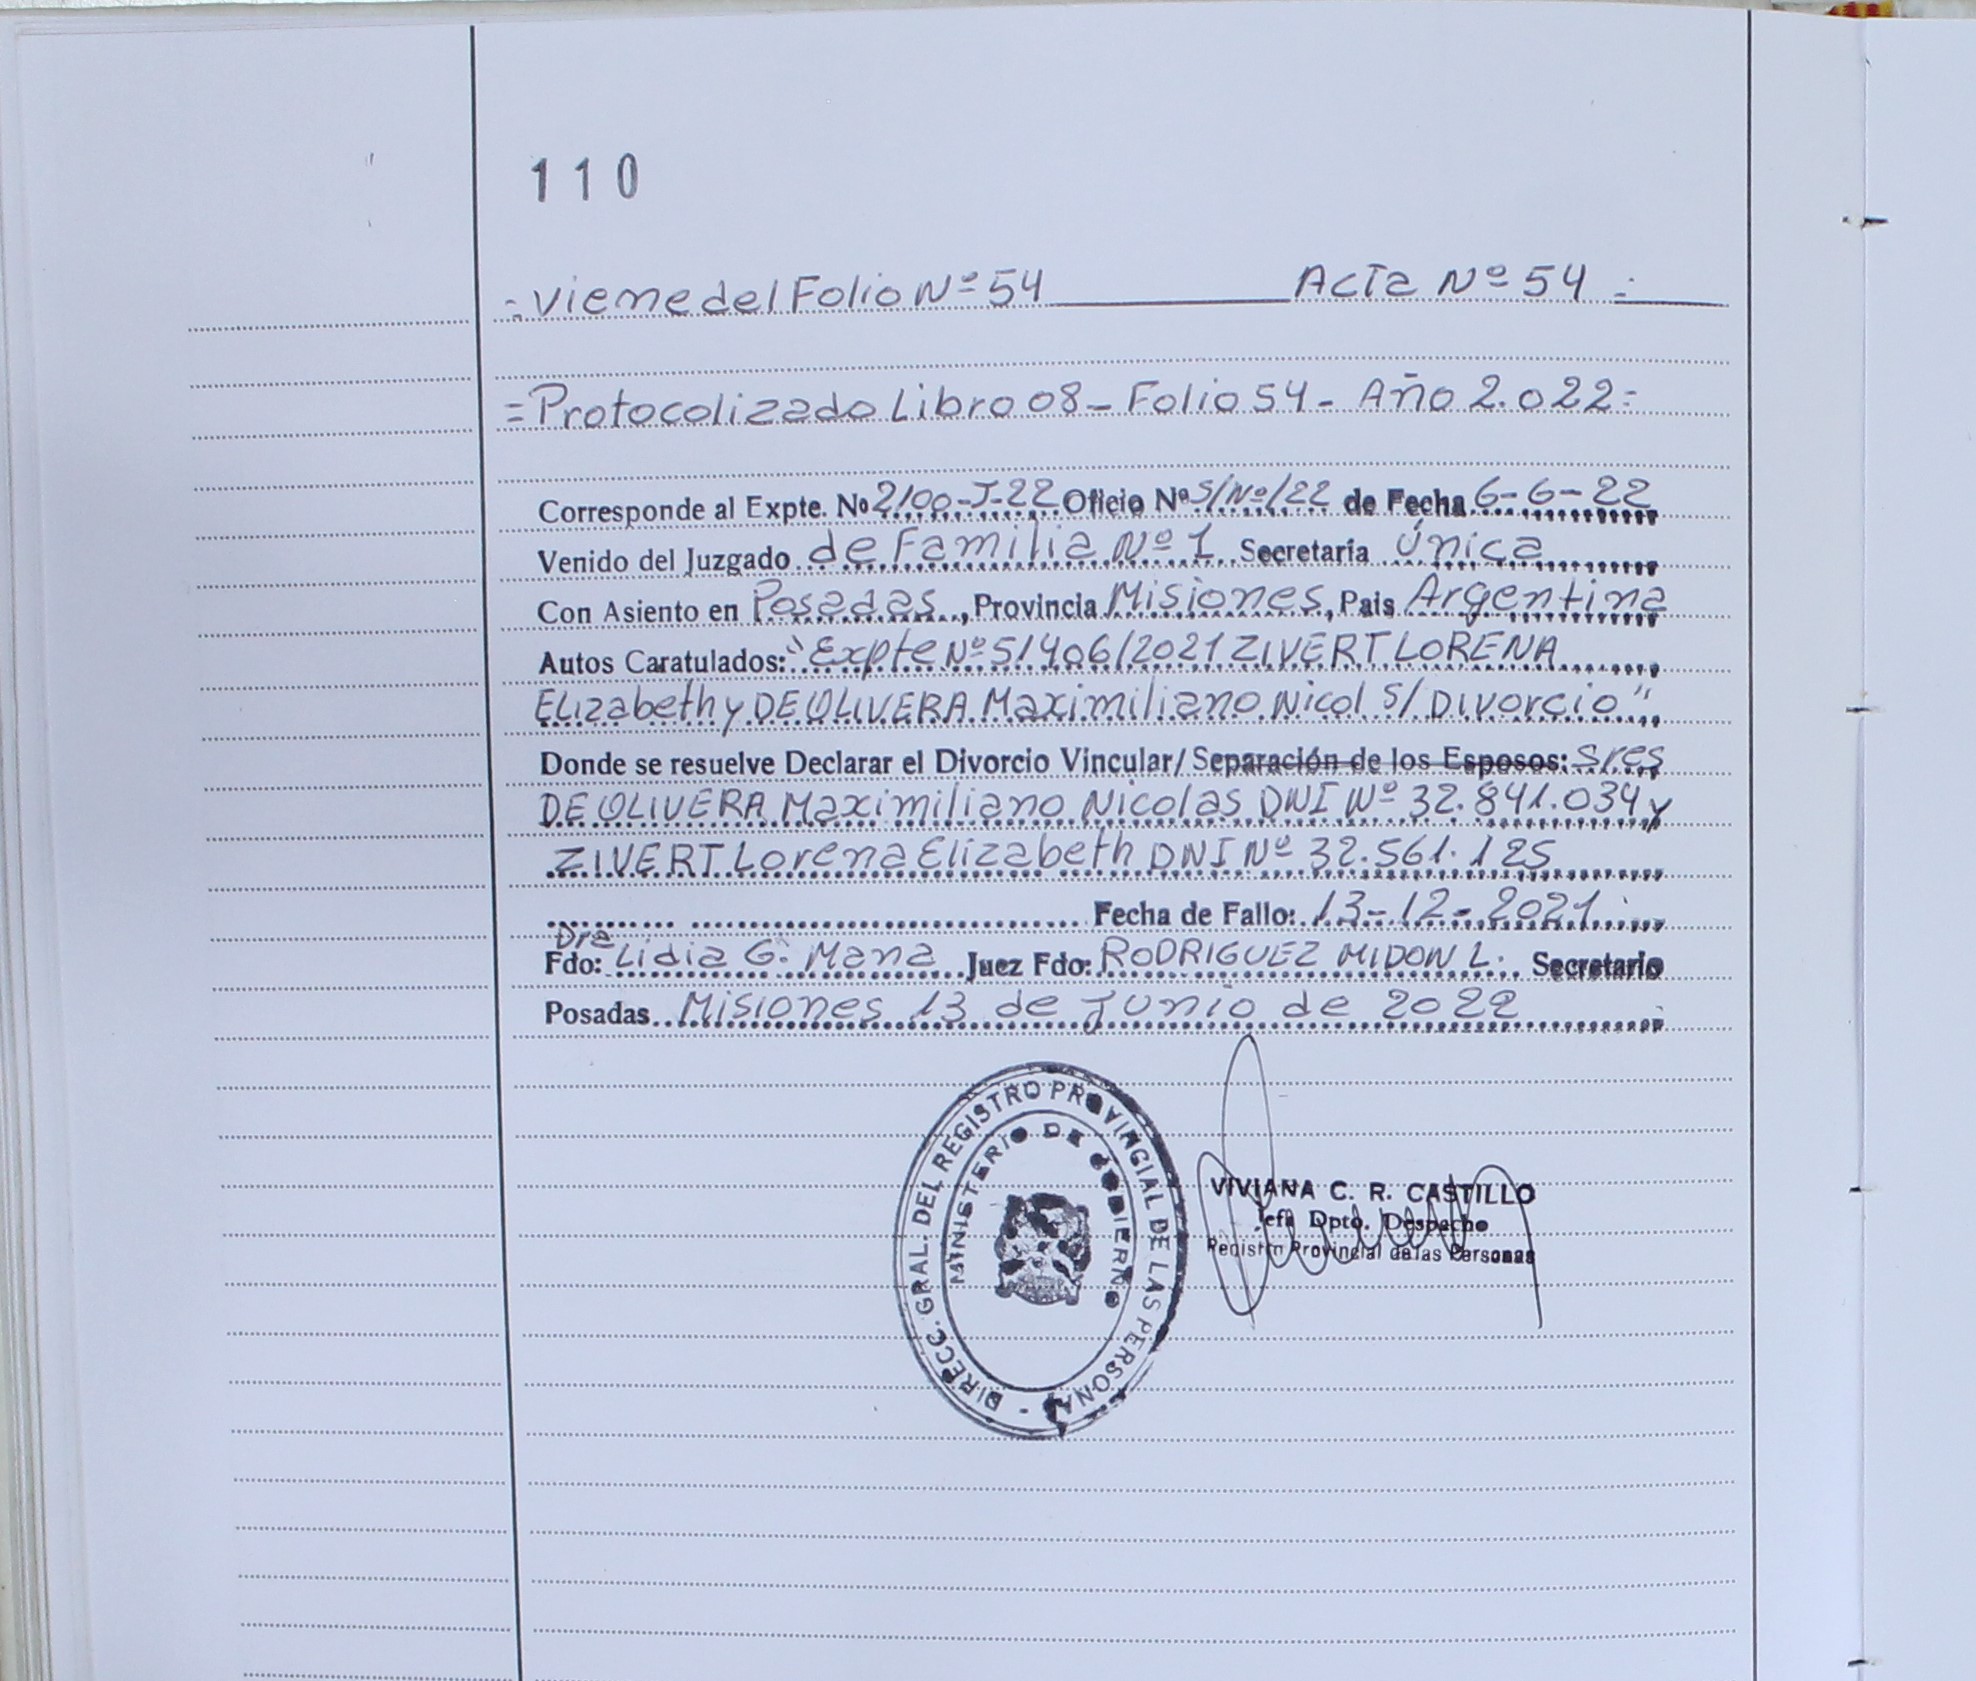 110
=Viene del Folio Nº 54 Acta Nº 54=
=Protocolizado Libro 08 - Folio 54 - Año 2.022=
Corresponde al Expte. No 2100-J-22 Oficio Nº S/Nº/22 de Fecha 6-6-22
Venido del Juzgado de Familia Nº 1 Secretaría Única
Con Asiento en Posadas, Provincia Misiones, Pais Argentina
Autos Caratulados: "Expte Nº 51406/2021 ZIVERT LORENA
Elizabeth y DE OLIVERA Maximiliano Nicol S/ Divorcio"
Donde se resuelve Declarar el Divorcio Vincular/ Separación de los Esposos: Sres
DE OLIVERA Maximiliano Nicolas DNI Nº 32.841.034 y
ZIVERT Lorena Elizabeth DNI Nº 32.561.125
Fecha de Fallo: 13-12-2021
Fdo: Dra Lidia G. Mana Juez Fdo: RODRIGUEZ MIDON L. Secretario
Posadas Misiones 13 de Junio de 2022
DIRECC. GRAL. DEL REGISTRO PROVINCIAL DE LAS PERSONAS -
MINISTERIO DE GOBIERNO
VIVIANA C. R. CASTILLO
Jefa Dpto. Despacho
Registro Provincial de las Personas